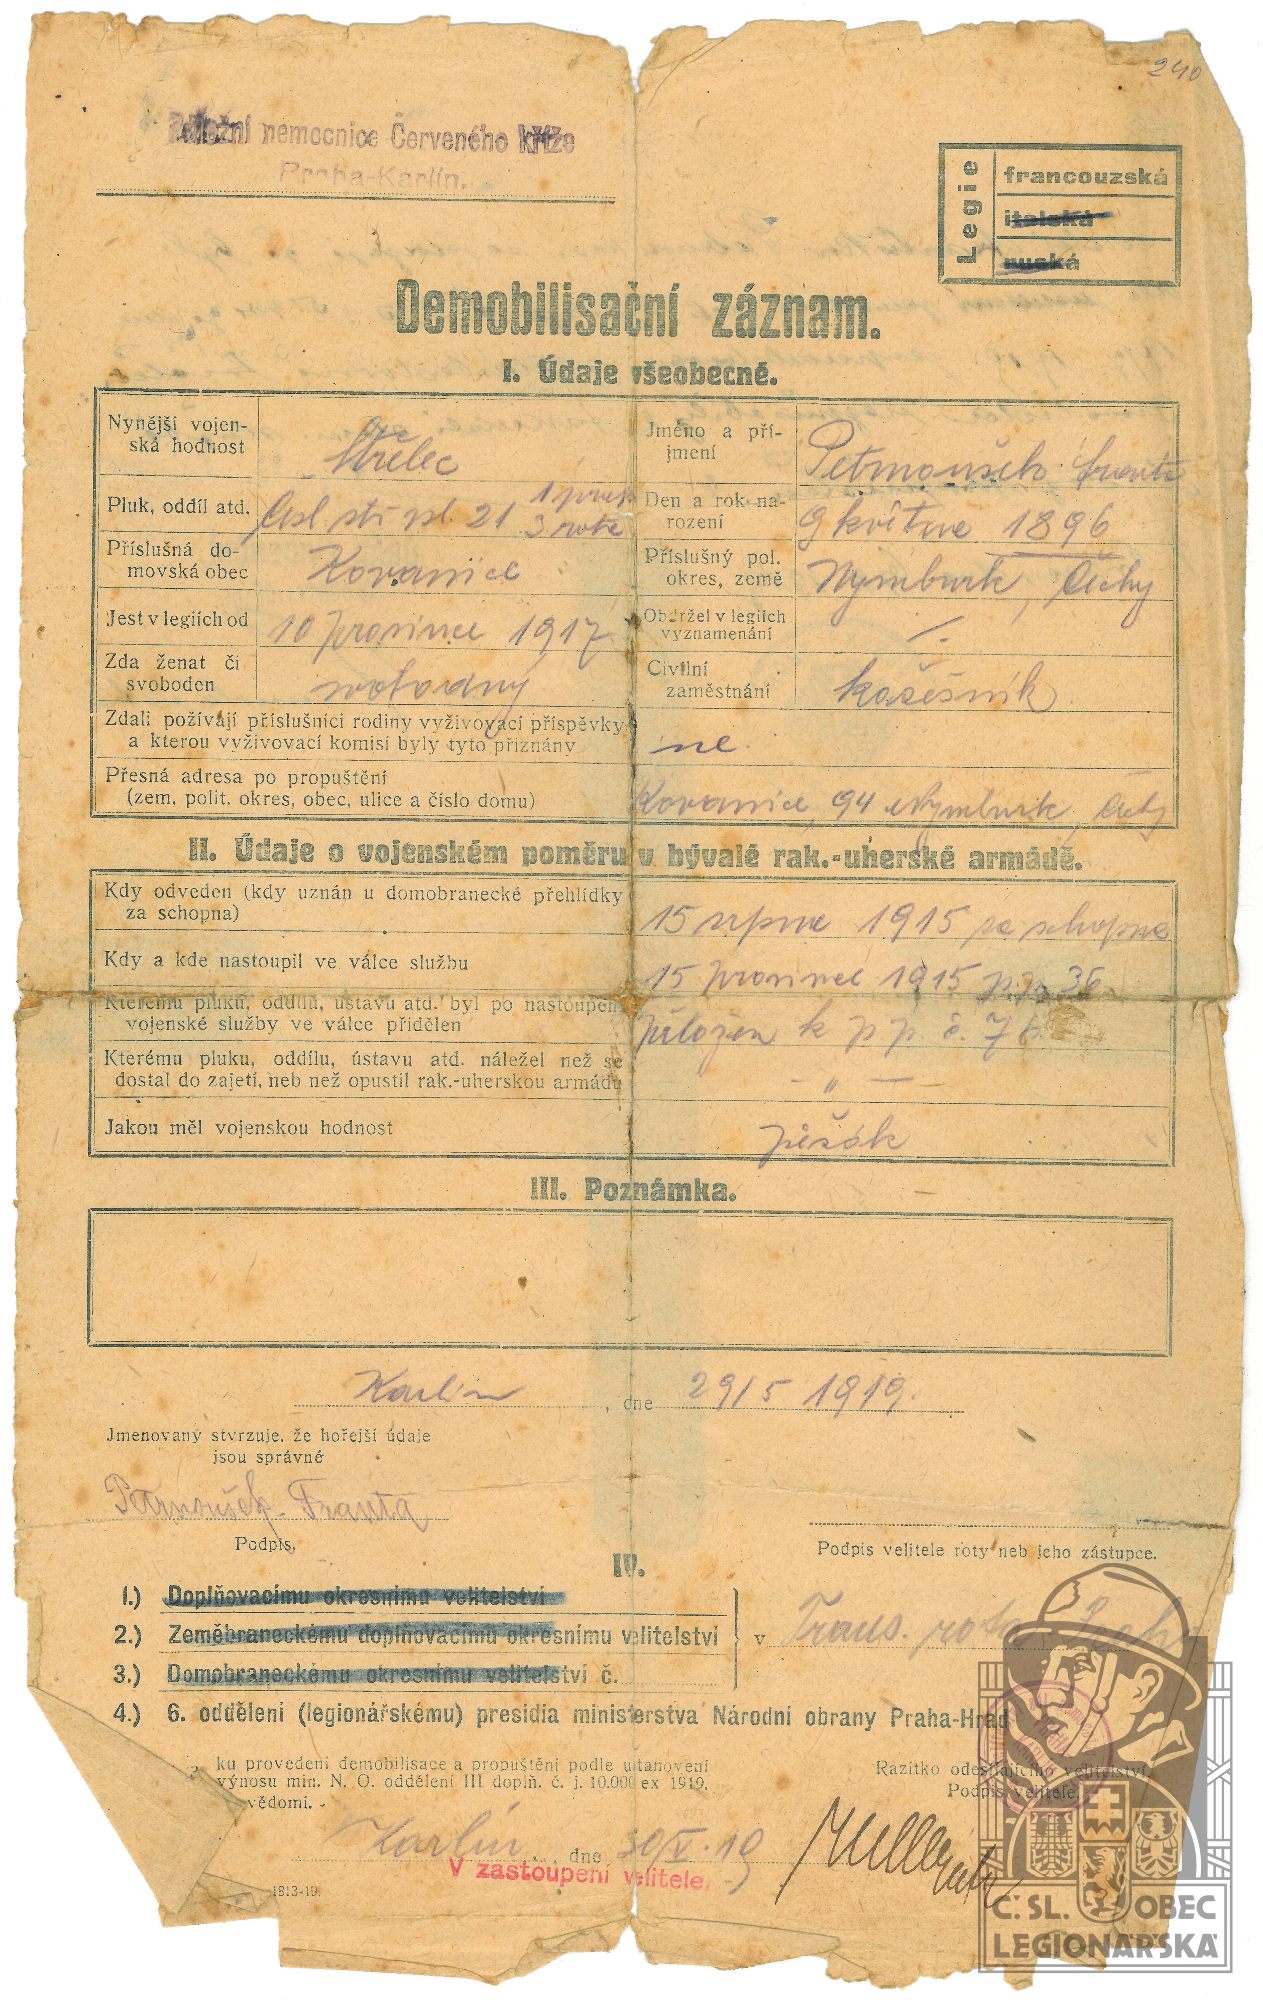 240
Záložní nemocnice Červeného kříže
Praha-Karlín.
Legie
francouzská
italská
ruská
Demobilisační záznam.
I. Údaje všeobecné.
Nynější vojen-
ská hodnost
Střelec
Jméno a pří-
jmení
Petrnoušek Franta
Pluk, oddíl atd.
čsl. stř. pl. 21 1 prap.
3 rota
Den a rok na-
rození
9 května 1896
Příslušná do-
movská obec
Kovanice
Příslušný pol.
okres, země
Nymburk, Čechy
Jest v legiích od
10 prosince 1917
Obdržel v legiích
vyznamenání
Zda ženat či
svoboden
svobodný
Civilní
zaměstnání
kožešník
Zdali požívají příslušníci rodiny vyživovací příspěvky
a kterou vyživovací komisí byly tyto přiznány
ne.
Přesná adresa po propuštění
(zem. polit. okres, obec, ulice a číslo domu)
Kovanice, 94 Nymburk, Čechy
II. Údaje o vojenském poměru v bývalé rak.-uherské armádě.
Kdy odveden (kdy uznán u domobranecké přehlídky
za schopna)
15 srpna 1915 za schopna
Kdy a kde nastoupil ve válce službu
15 prosince 1915 p.p. 36
Kterému pluku, oddílu, ústavu atd. byl po nastoupení
vojenské služby ve válce přidělen
přiložen k p. p. č.
Kterému pluku, oddílu, ústavu atd. náležel než se
dostal do zajetí, neb než opustil rak.-uherskou armádu
— „ —
Jakou měl vojenskou hodnost
pěšák
III. Poznámka.
Karlín, dne 29/5 1919.
Jmenovaný stvrzuje, že hořejší údaje
jsou správné
Petrnoušek Franta
Podpis.
Podpis velitele roty neb jeho zástupce.
IV.
1.) Doplňovacímu okresnímu velitelství
2.) Zeměbraneckému doplňovacímu okresnímu velitelství
3.) Domobraneckému okresnímu velitelství č.
v Trans. rota
4.) 6. oddělení (legionářskému) presidia ministerstva Národní obrany Praha-Hrad
ku provedení demobilisace a propuštění podle ustanovení
výnosu min. N. O. oddělení III doplň. č. j. 10.000 ex 1919,
vědomí.
Razítko odesílajícího velitelství.
Podpis velitele.
Karlín, dne 30/V. 19
V zastoupení velitele.
1813-19.
Č. SL. OBEC
LEGIONÁŘSKÁ